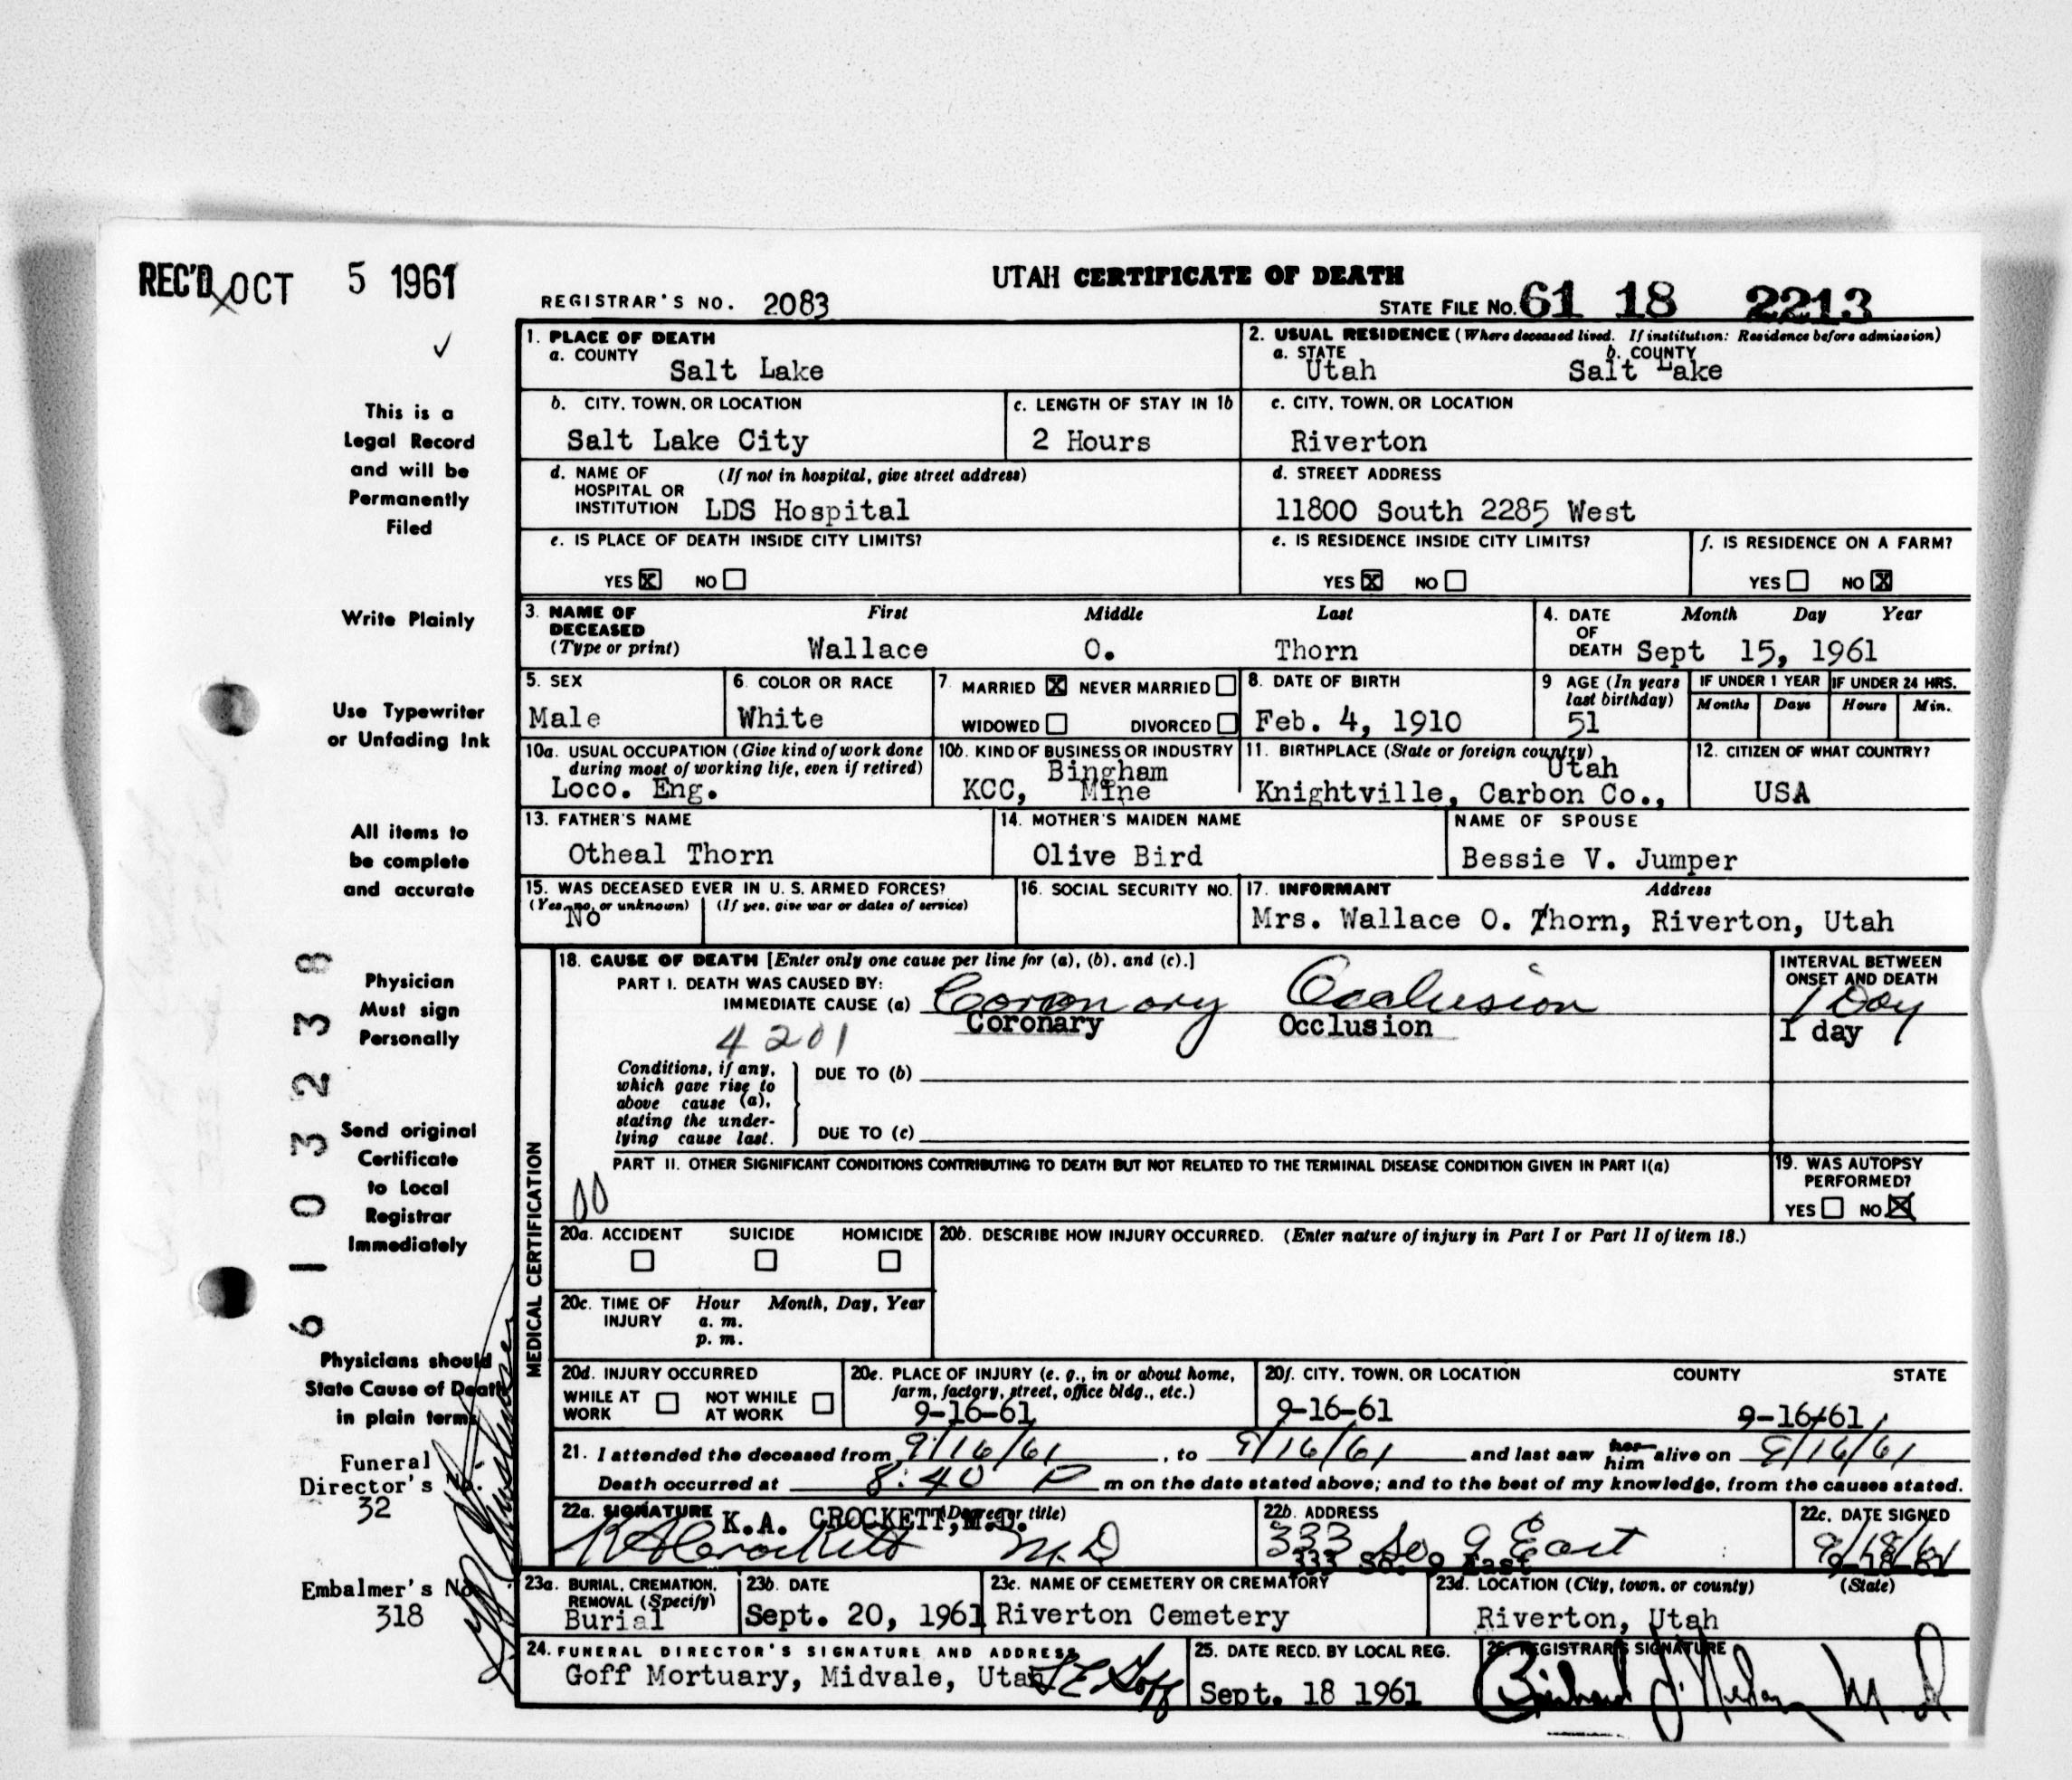 REC'D OCT 5 1961
UTAH CERTIFICATE OF DEATH
REGISTRAR'S NO. 2083
STATE FILE NO. 61 18 2213
1. PLACE OF DEATH
a. COUNTY
Salt Lake
2. USUAL RESIDENCE (Where deceased lived. If institution: Residence before admission)
a. STATE b. COUNTY
Utah Salt Lake
b. CITY, TOWN, OR LOCATION
Salt Lake City
c. LENGTH OF STAY IN 1b
2 Hours
c. CITY, TOWN, OR LOCATION
Riverton
d. NAME OF (If not in hospital, give street address)
HOSPITAL OR
INSTITUTION LDS Hospital
d. STREET ADDRESS
11800 South 2285 West
e. IS PLACE OF DEATH INSIDE CITY LIMITS?
YES X NO
e. IS RESIDENCE INSIDE CITY LIMITS?
YES X NO
f. IS RESIDENCE ON A FARM?
YES NO X
3. NAME OF First Middle Last
DECEASED
(Type or print) Wallace O. Thorn
4. DATE Month Day Year
OF
DEATH Sept 15, 1961
5. SEX
Male
6. COLOR OR RACE
White
7. MARRIED X NEVER MARRIED
WIDOWED DIVORCED
8. DATE OF BIRTH
Feb. 4, 1910
9 AGE (In years
last birthday)
51
IF UNDER 1 YEAR IF UNDER 24 HRS.
Months Days Hours Min.
10a. USUAL OCCUPATION (Give kind of work done
during most of working life, even if retired)
Loco. Eng.
10b. KIND OF BUSINESS OR INDUSTRY
Bingham
KCC, Mine
11. BIRTHPLACE (State or foreign country)
Utah
Knightville, Carbon Co.,
12. CITIZEN OF WHAT COUNTRY?
USA
13. FATHER'S NAME
Otheal Thorn
14. MOTHER'S MAIDEN NAME
Olive Bird
NAME OF SPOUSE
Bessie V. Jumper
15. WAS DECEASED EVER IN U. S. ARMED FORCES?
(Yes, no, or unknown) (If yes, give war or dates of service)
No
16. SOCIAL SECURITY NO.
17. INFORMANT Address
Mrs. Wallace O. Thorn, Riverton, Utah
MEDICAL CERTIFICATION
18. CAUSE OF DEATH [Enter only one cause per line for (a), (b), and (c).]
PART I. DEATH WAS CAUSED BY:
IMMEDIATE CAUSE (a) Coronary Occlusion
Coronary Occlusion
4201
INTERVAL BETWEEN
ONSET AND DEATH
1 Day
1 day
Conditions, if any,
which gave rise to
above cause (a),
stating the under-
lying cause last.
DUE TO (b)
DUE TO (c)
PART II. OTHER SIGNIFICANT CONDITIONS CONTRIBUTING TO DEATH BUT NOT RELATED TO THE TERMINAL DISEASE CONDITION GIVEN IN PART I(a)
00
19. WAS AUTOPSY
PERFORMED?
YES NO X
20a. ACCIDENT SUICIDE HOMICIDE
20b. DESCRIBE HOW INJURY OCCURRED. (Enter nature of injury in Part I or Part II of item 18.)
20c. TIME OF Hour Month, Day, Year
INJURY a. m.
p. m.
20d. INJURY OCCURRED
WHILE AT WORK NOT WHILE AT WORK
20e. PLACE OF INJURY (e. g., in or about home,
farm, factory, street, office bldg., etc.)
9-16-61
20f. CITY, TOWN, OR LOCATION COUNTY STATE
9-16-61 9-16-61
21. I attended the deceased from 9/16/61, to 9/16/61 and last saw her him alive on 9/16/61
Death occurred at 8:40 P m on the date stated above; and to the best of my knowledge, from the causes stated.
22a. SIGNATURE (Degree or title)
K.A. CROCKETT, M.D.
K A Crockett M.D
22b. ADDRESS
333 So 9 East
333 So. 9 East
22c. DATE SIGNED
9/18/61
9-18-61
23a. BURIAL, CREMATION,
REMOVAL (Specify)
Burial
23b. DATE
Sept. 20, 1961
23c. NAME OF CEMETERY OR CREMATORY
Riverton Cemetery
23d. LOCATION (City, town, or county) (State)
Riverton, Utah
24. FUNERAL DIRECTOR'S SIGNATURE AND ADDRESS
Goff Mortuary, Midvale, Utah
25. DATE RECD. BY LOCAL REG.
Sept. 18 1961
26. REGISTRAR'S SIGNATURE
This is a
Legal Record
and will be
Permanently
Filed
Write Plainly
Use Typewriter
or Unfading Ink
All items to
be complete
and accurate
Physician
Must sign
Personally
Send original
Certificate
to Local
Registrar
Immediately
Physicians should
State Cause of Death
in plain terms
Funeral
Director's No.
32
Embalmer's No.
318
6103238